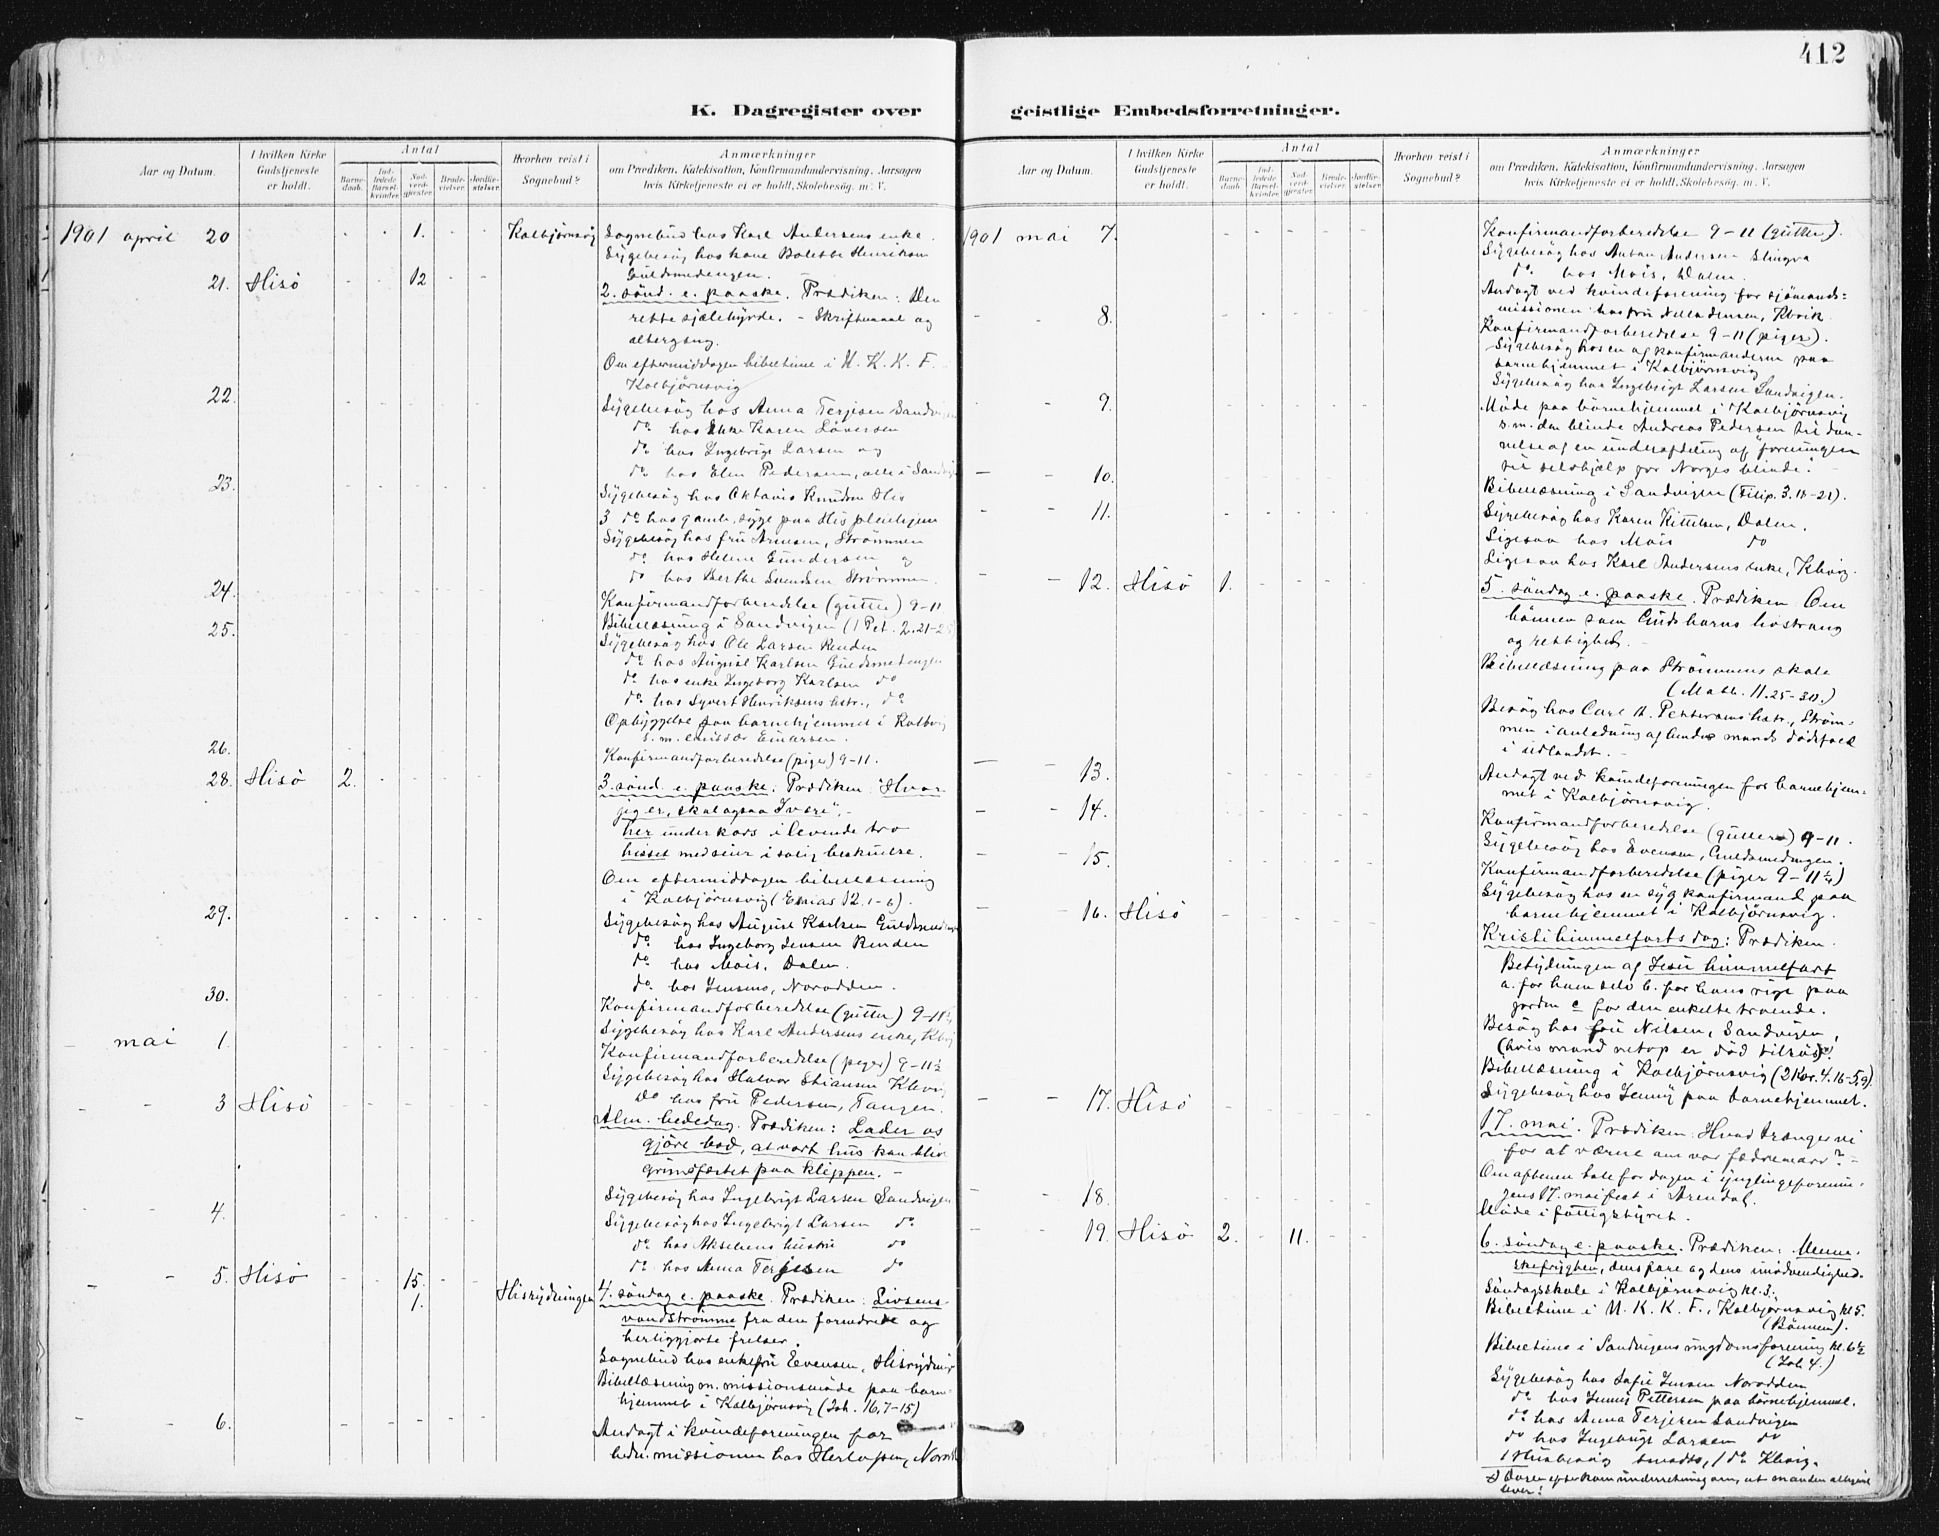 412
K. Dagregister over geistlige Embedsforretninger.
Aar og Datum.
I hvilken Kirke Gudstjeneste er holdt.
Antal
Barnedaab.
Indledede Barselkvinder.
Nadverdgjester.
Brudevielser.
Jordfæstelser.
Hvorhen reist i Sognebud?
Anmærkninger
om Prædiken, Katekisation, Konfirmandundervisning, Aarsagen
hvis Kirketjeneste ei er holdt, Skolebesøg, m. V.
1901 april 20 1. Kolbjørnsvig Sognebud hos Karl Andersens enke.
Sygebesøg hos kone Bolette Henriksen
Guldsmedengen.
21. Hisö 12 2. sönd. e. paaske. Prædiken: Den
rette sjælehyrde. - Skriftemaal og
altergang.
Om eftermiddagen bibeltime i U. K. K. F.
Kolbjørnsvig
22. Sygebesøg hos Anna Terjesen Sandvigen
do hos Enke Karen Larsen
do hos Ingebrigt Larsen og
do hos Elen Pedersen, alle i Sandvig
23. Sygebesøg hos Oktavis Knudsen His
3 do hos gamle, syge paa His pleiehjem
Sygebesøg hos fru Arnesen, Strømmen
do hos Helene Gundersen og
do hos Berthe Svendsen Strømmen.
24. Konfirmandforberedelse (gutter) 9-11
25. Bibellæsning i Sandvigen (1 Pet. 2. 21-25)
Sygebesøg hos Ole Larsen Renden
do hos August Karlsen Guldsmedengen
do hos enke Ingeborg Karlsen do
do hos Syvert Henriksens hstr., do
Opbyggelse paa barnehjemmet i Kolbvig
s. m. emissær Einarsen.
26. Konfirmandforberedelse (piger) 9-11.
28. Hisö 2. 3. sönd. e. paaske. Prædiken: "Hvor
jeg er, skal ogsaa I være".-
her under kors i levende tro
hisset med seier i salig beskuelse.
Om eftermiddagen bibellæsning
i Kolbjørnsvig (Esaias 12. 1-6).
29. Sygebesøg hos August Karlsen Guldsmedengen
do hos Ingeborg Jensen Renden
do hos Mois, Dalen.
do hos Jensens, Norodden.
30. Konfirmandforberedelse (gutter) 9-11½
Sygebesøg hos Karl Andersens enke, Kbvig
mai 1. Konfirmandforberedelse (piger) 9-11½
Sygebesøg hos Halvor Stiansen Kbvig
Do hos fru Pedersen, Tangen.
3 Hisö Alm. bededag. Prædiken: Lader os
gjöre bod, at vort hus kan blive
grundfæstet paa klippen. -
Sygebesøg hos Ingebrigt Larsen Sandvigen
4. Sygebesøg hos Ingebrigt Larsen do
do hos Akselsens hustru do
do hos Anna Terjesen do
5. Hisö 15. 4. søndag e. paaske. Prædiken: Livsens
1. Hisrydningen vandstrømme fra den fornedrede og
herliggjorte frelser.
Sognebud hos enkefru Evensen, Hisrydning
Bibellæsning m. missionsmøde paa barne-
hjemmet i Kolbjørnsvig (Joh. 16, 7-15)
6. Andagt i kvindeforeningen for
hedn. missionen hos Herlofsen, Norodd
1901 mai 7. Konfirmandforberedelse 9-11 (gutter).
Sygebesøg hos Anton Andersen Slingva
do hos Mois, Dalen.
Andagt ved kvindeforening for sjömands-
missionen hos fru Jensen, Kbvik.
8. Konfirmandforberedelse 9-11 (piger).
Sygebesøg hos en af konfirmanderne paa
barnehjemmet i Kolbjørnsvig
Sygebesøg hos Ingebrigt Larsen Sandvigen.
9. Møde paa børnehjemmet i Kolbjørnsvig
s. m. den blinde Andreas Pedersen til dan-
nelse af en underafdeling af "foreningen
til selvhjælp for Norges blinde".
10. Bibellæsning i Sandvigen (Filip. 3. 18-21).
11. Sygebesøg hos Karen Kittelsen, Dalen.
Ligesaa hos Mois do
Ligesaa hos Karl Andersens enke, Kbvig.
12. Hisö 1. 5. søndag e. paaske. Prædiken Om
bönnen som Guds barns livstrang
og rettighed. -
Bibellæsning paa Strømmens skole
(Matth. 11. 25-30.)
Besøg hos Carl A. Pettersens hstr., Strøm-
men i anledning af hendes mands dödsfald
i udlandet. -
13. Andagt ved kvindeforeningen for barnehjem-
met i Kolbjørnsvig.
14. Konfirmandforberedelse (gutter) 9-11.
Sygebesøg hos Evensen, Guldsmedengen.
15. Konfirmandforberedelse (piger 9-11¼)
Sygebesøg hos en syg konfirmand paa
barnehjemmet i Kolbjørnsvig.
16. Hisö Kristi himmelfartsdag: Prædiken.
Betydningen af Jesu himmelfart
a. for ham selv b. for hans rige paa
jorden c for den enkelte troende.
Besøg hos fru Nilsen, Sandvigen,
(hvis mand netop er död tilsjös x)!
Bibellæsning i Kolbjørnsvig (2 Kor. 4. 16-5, 9).
Sygebesøg hos Jenny paa barnehjemmet.
17. Hisö 17. mai. Prædiken: Hvad trænges vi
for at værne om vor fædrenearv? -
Om aftenen tale for dagen i ynglingeforenin-
gens 17. maifest i Arendal.
18. Møde i fattigstyret.
19. Hisö 2. 11. 6. søndag e. paaske. Prædiken: Menne-
skefrygten, dens fare og dens unødvendighed.
Søndagsskole i Kolbjørnsvig kl. 3.
Bibeltime i U. K. K. F., Kolbjørnsvig kl 5.
(Bönnen).
Bibeltime i Sandvigens ungdomsforening kl. 6½
(Joh 4.)
Sygebesøg hos Sofie Jensen Norodden
do hos Jenny Pettersen paa børnehjemmet.
do hos Anna Terjesen Sandvigen
do hos Ingebrigt Larsen do
1 Husbesøg, 1 do Kbvig.
x) Dagen efter kom underretning om, at manden alligevel
lever!